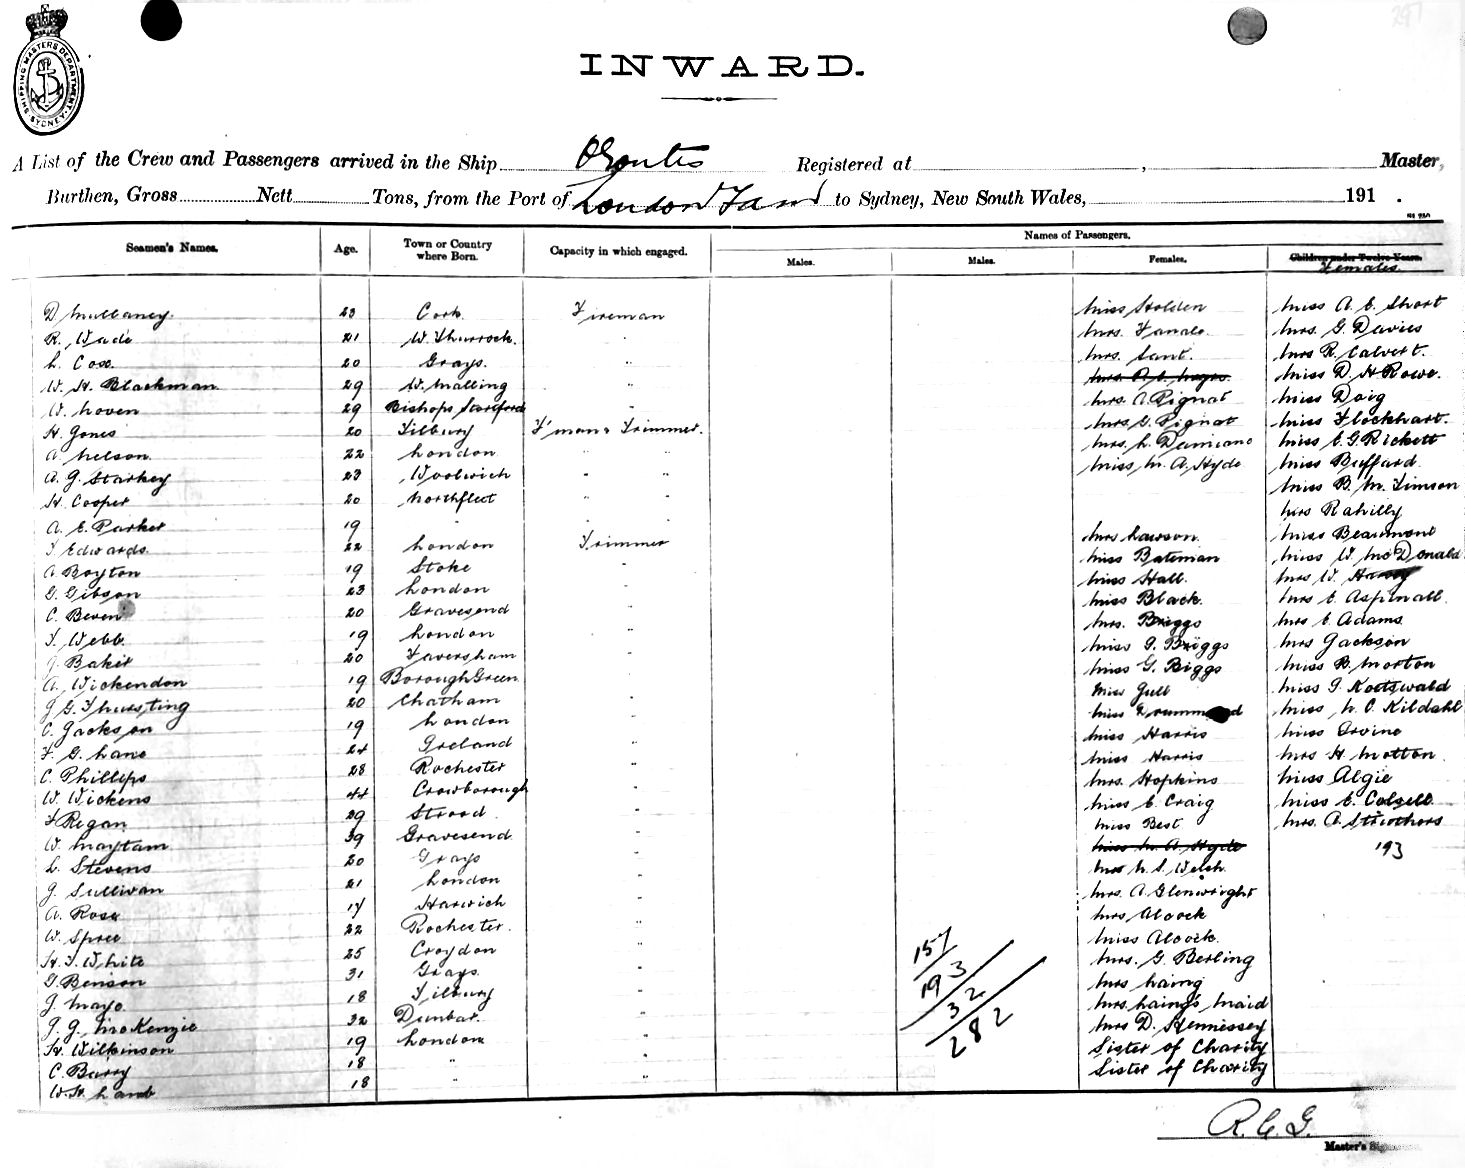 INWARD.
SHIPPING MASTERS DEPARTMENT SYDNEY
A List of the Crew and Passengers arrived in the Ship Orontes Registered at , Master,
Burthen, Gross Nett Tons, from the Port of London to Sydney, New South Wales, 191 .
Seamen's Names. Age. Town or Country where Born. Capacity in which engaged. Names of Passengers.
Males. Males. Females. Children under Twelve Years. Females.
D Mullaney. 23 Cork. Fireman Miss Holden Miss A. E. Short
R. Wade 21 W. Thurrock. " Mrs. Mrs. G. Davies
L. Cox. 20 Grays. " Mrs. Sant. Mrs R. Calvert.
W. H. Blackman 29 W. Malling " Mrs. Miss D. H Rowe.
W. Loven 29 Bishops " Mrs. A. Pignat Miss Doig
H. Jones 20 Tilbury F'man & Trimmer. Mrs. G. Pignat Miss Flockhart.
A. Nelson 22 London " " Mrs. L. Damiano Miss E. G. Rickett
A. G. Starkey 23 Woolwich " " Miss M. A. Hyde Miss Buffard.
H. Cooper 20 Northfleet " " Miss B. M. Timson
A. E. Parker 19 " " " Mrs Rahilly
T. Edwards. 22 London Trimmer Mrs Lawson. Miss Beaumont
A. Boyton 19 Stoke " Miss Bateman Miss W. McDonald
G. Gibson 23 London " Miss Hall. Mrs W. Harvy
C. Beven 20 Gravesend " Miss Black. Mrs E. Aspinall.
T. Webb. 19 London " Mrs. Briggs Mrs E Adams.
J. Baker 20 Faversham " Miss P. Briggs Mrs Jackson
A. Wickendon 19 Borough Green " Miss G. Biggs Miss B. Morton
J. G. Thursting 20 Chatham " Miss Gull Miss I. Koetswald
C. Jackson 19 London " Miss Drummond Miss L. C. Kildahl
F. G. Lane 24 Ireland " Miss Harris Miss Irvine
C. Phillips 28 Rochester " Miss Harris Mrs H. Motton.
W. Wickens 44 Crowborough " Mrs. Hopkins Miss Algie
F Regan 29 Strood " Miss E. Craig Miss E. Colgell
W. Maytam 39 Gravesend " Miss Best Mrs. A. Struthers
L. Stevens 20 Grays " Miss M. A. Hyde 193
J. Sullivan 21 London " Mrs L. S. Welsh.
A. Rose 17 Harwich " Mrs. A. Glenwright
W. Spree 22 Rochester. " Mrs Alcock
H. T. White 25 Croydon " Miss Alcock.
G. Benson 31 Grays. " Mrs. G. Berling
J. Mayo. 18 Tilbury " Mrs Laing
J. G. McKenzie 32 Dunbar. " Mrs. Laing's Maid
H. Wilkinson 19 London " Mrs D. Hennessey
C. Barry 18 " " Sister of Charity
W. H. Lamb 18 " " Sister of Charity
157
193
32
282
R. C. G.
Master's